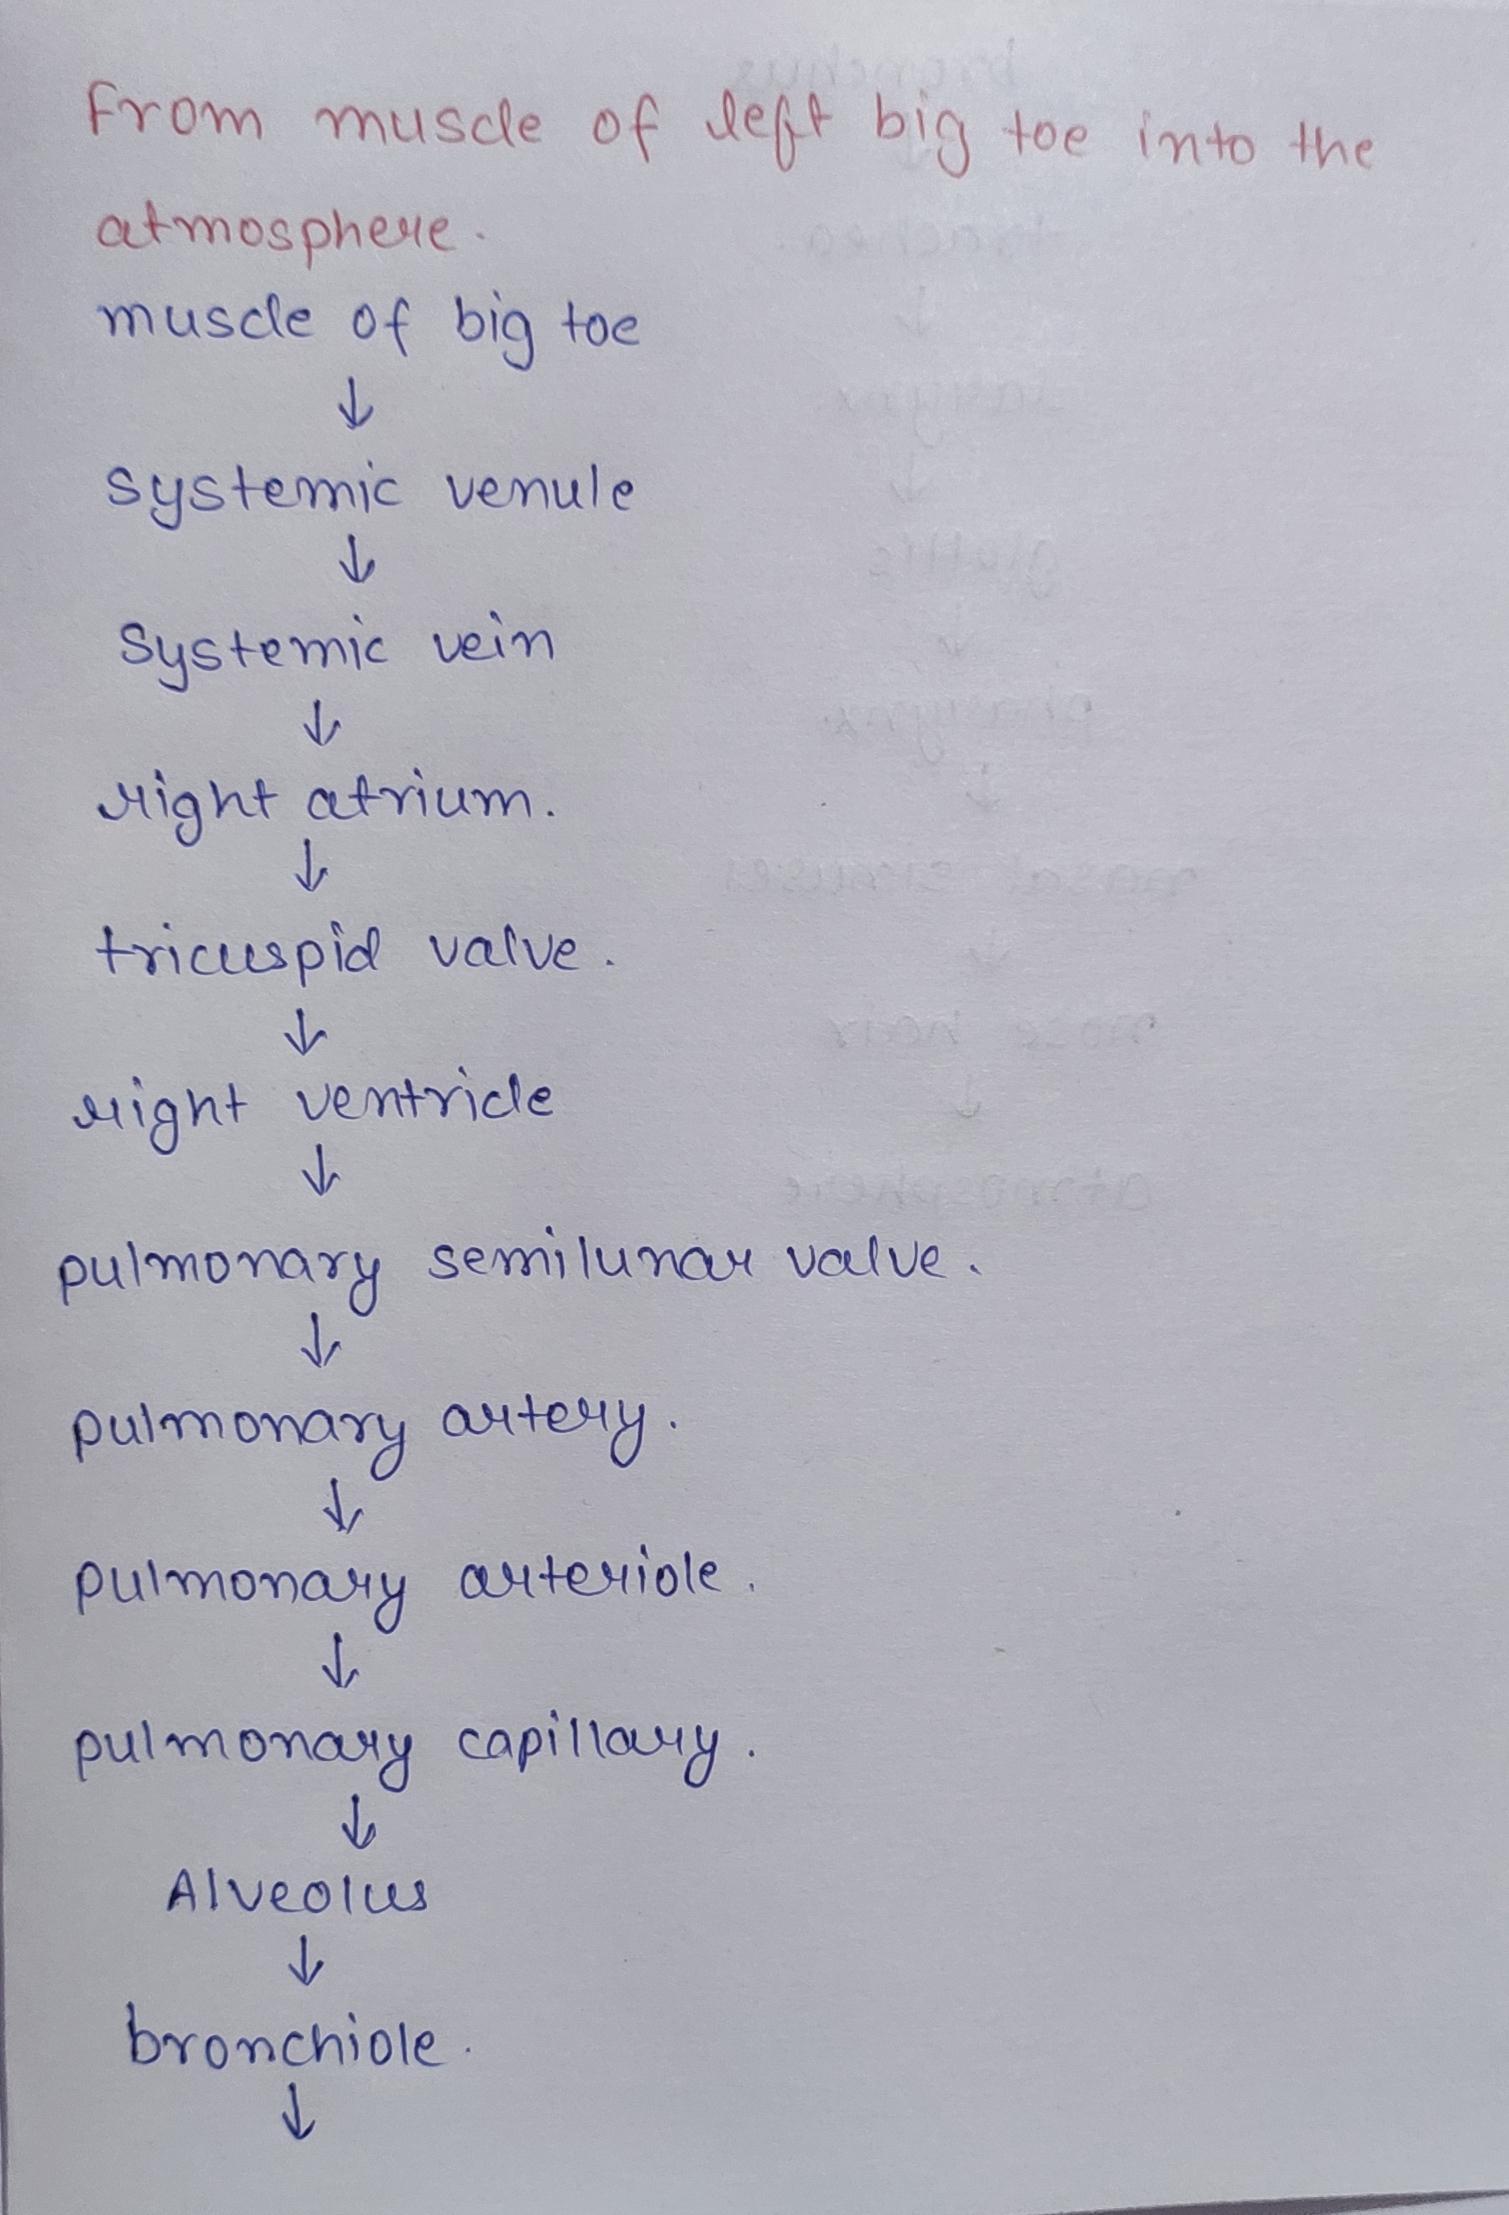 From muscle of left big toe into the
atmosphere.
muscle of big toe
↓
systemic venule
↓
systemic vein
↓
right atrium.
↓
tricuspid valve.
↓
right ventricle
↓
pulmonary semilunar valve.
↓
pulmonary artery.
↓
pulmonary arteriole.
↓
pulmonary capillary.
↓
Alveolus
↓
bronchiole.
↓